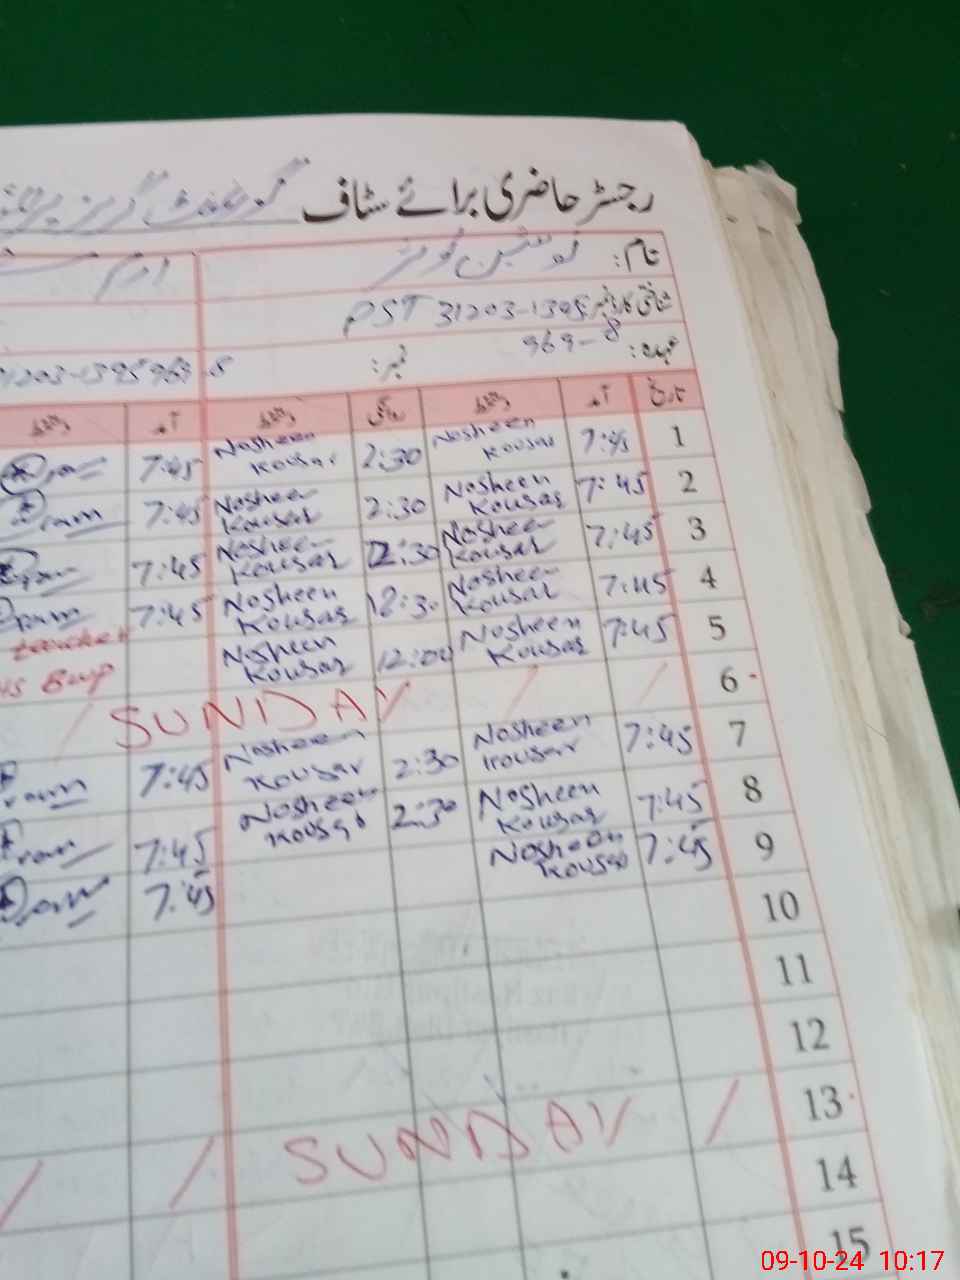 رجسٹر حاضری برائے سٹاف گورنمنٹ گرلز
نام: نوشین کوثر
شناختی کارڈ نمبر PST 31203-1395
عہدہ: 969-8 نمبر: 31203-1395969-8
تاریخ آمد دستخط روانگی دستخط آمد دستخط
1 7:45 Nosheen Kousar 2:30 Nosheen Kousar 7:45
2 7:45 Nosheen Kousar 2:30 Nosheen Kousar 7:45 Iram
3 7:45 Nosheen Kousar 12:30 Nosheen Kousar 7:45
4 7:45 Nosheen Kousar 12:30 Nosheen Kousar 7:45 Iram
5 7:45 Nosheen Kousar 12:00 Nosheen Kousar
6 SUNDAY
7 7:45 Nosheen Kousar 2:30 Nosheen Kousar 7:45 Iram
8 7:45 Nosheen Kousar 2:30 Nosheen Kousar 7:45 Iram
9 7:45 Nosheen Kousar 7:45 Iram
10
11
12
13 SUNDAY
14
15
09-10-24 10:17